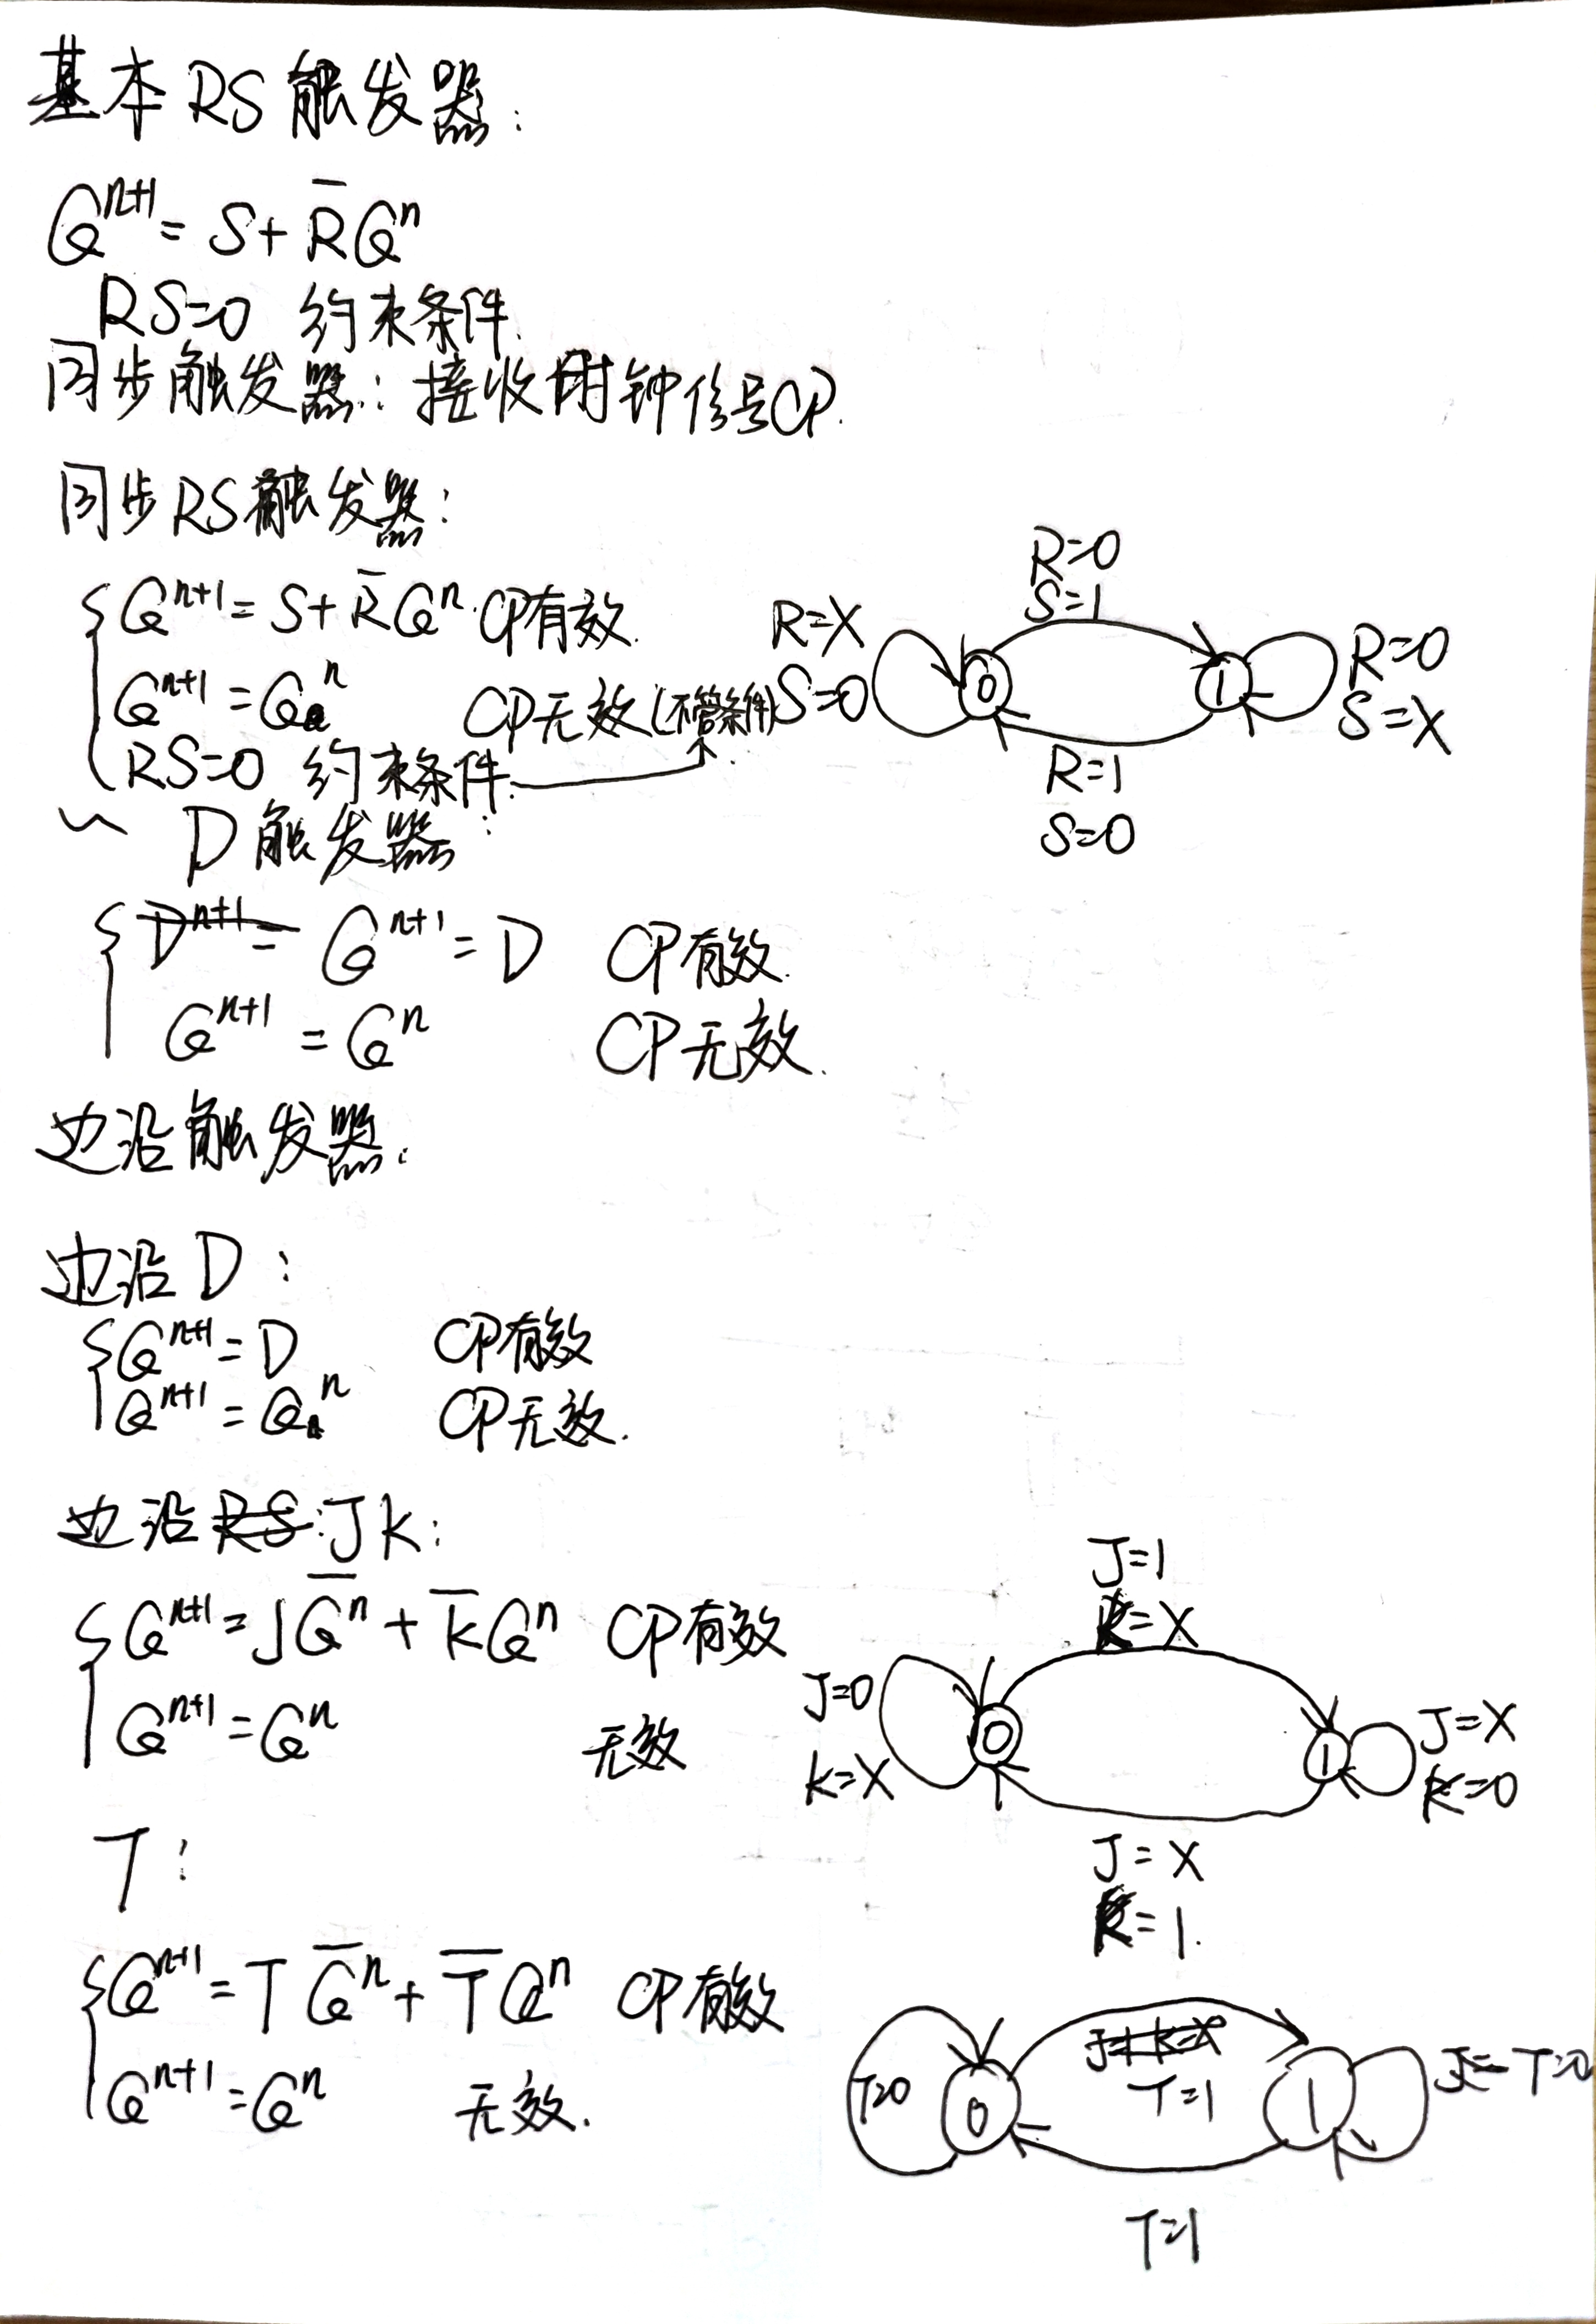 基本RS触发器:
Q^{n+1} = S + R̅Q^n
RS=0 约束条件.
同步触发器: 接收时钟信号CP.
同步RS触发器:
Q^{n+1} = S + R̅Q^n CP有效.
Q^{n+1} = Q^n CP无效(不管条件)
RS=0 约束条件.
R=0
S=1
R=X
S=0
0
1
R=0
S=X
R=1
S=0
〃 D触发器:
Q^{n+1} = D CP有效.
Q^{n+1} = Q^n CP无效.
边沿触发器.
边沿D:
Q^{n+1} = D CP有效
Q^{n+1} = Q^n CP无效.
边沿JK:
Q^{n+1} = JQ̅^n + K̅Q^n CP有效
Q^{n+1} = Q^n 无效
J=1
K=X
J=0
K=X
0
1
J=X
K=0
J=X
K=1.
T:
Q^{n+1} = TQ̅^n + T̅Q^n CP有效
Q^{n+1} = Q^n 无效.
T=0
0
T=1
1
T=0
T=1